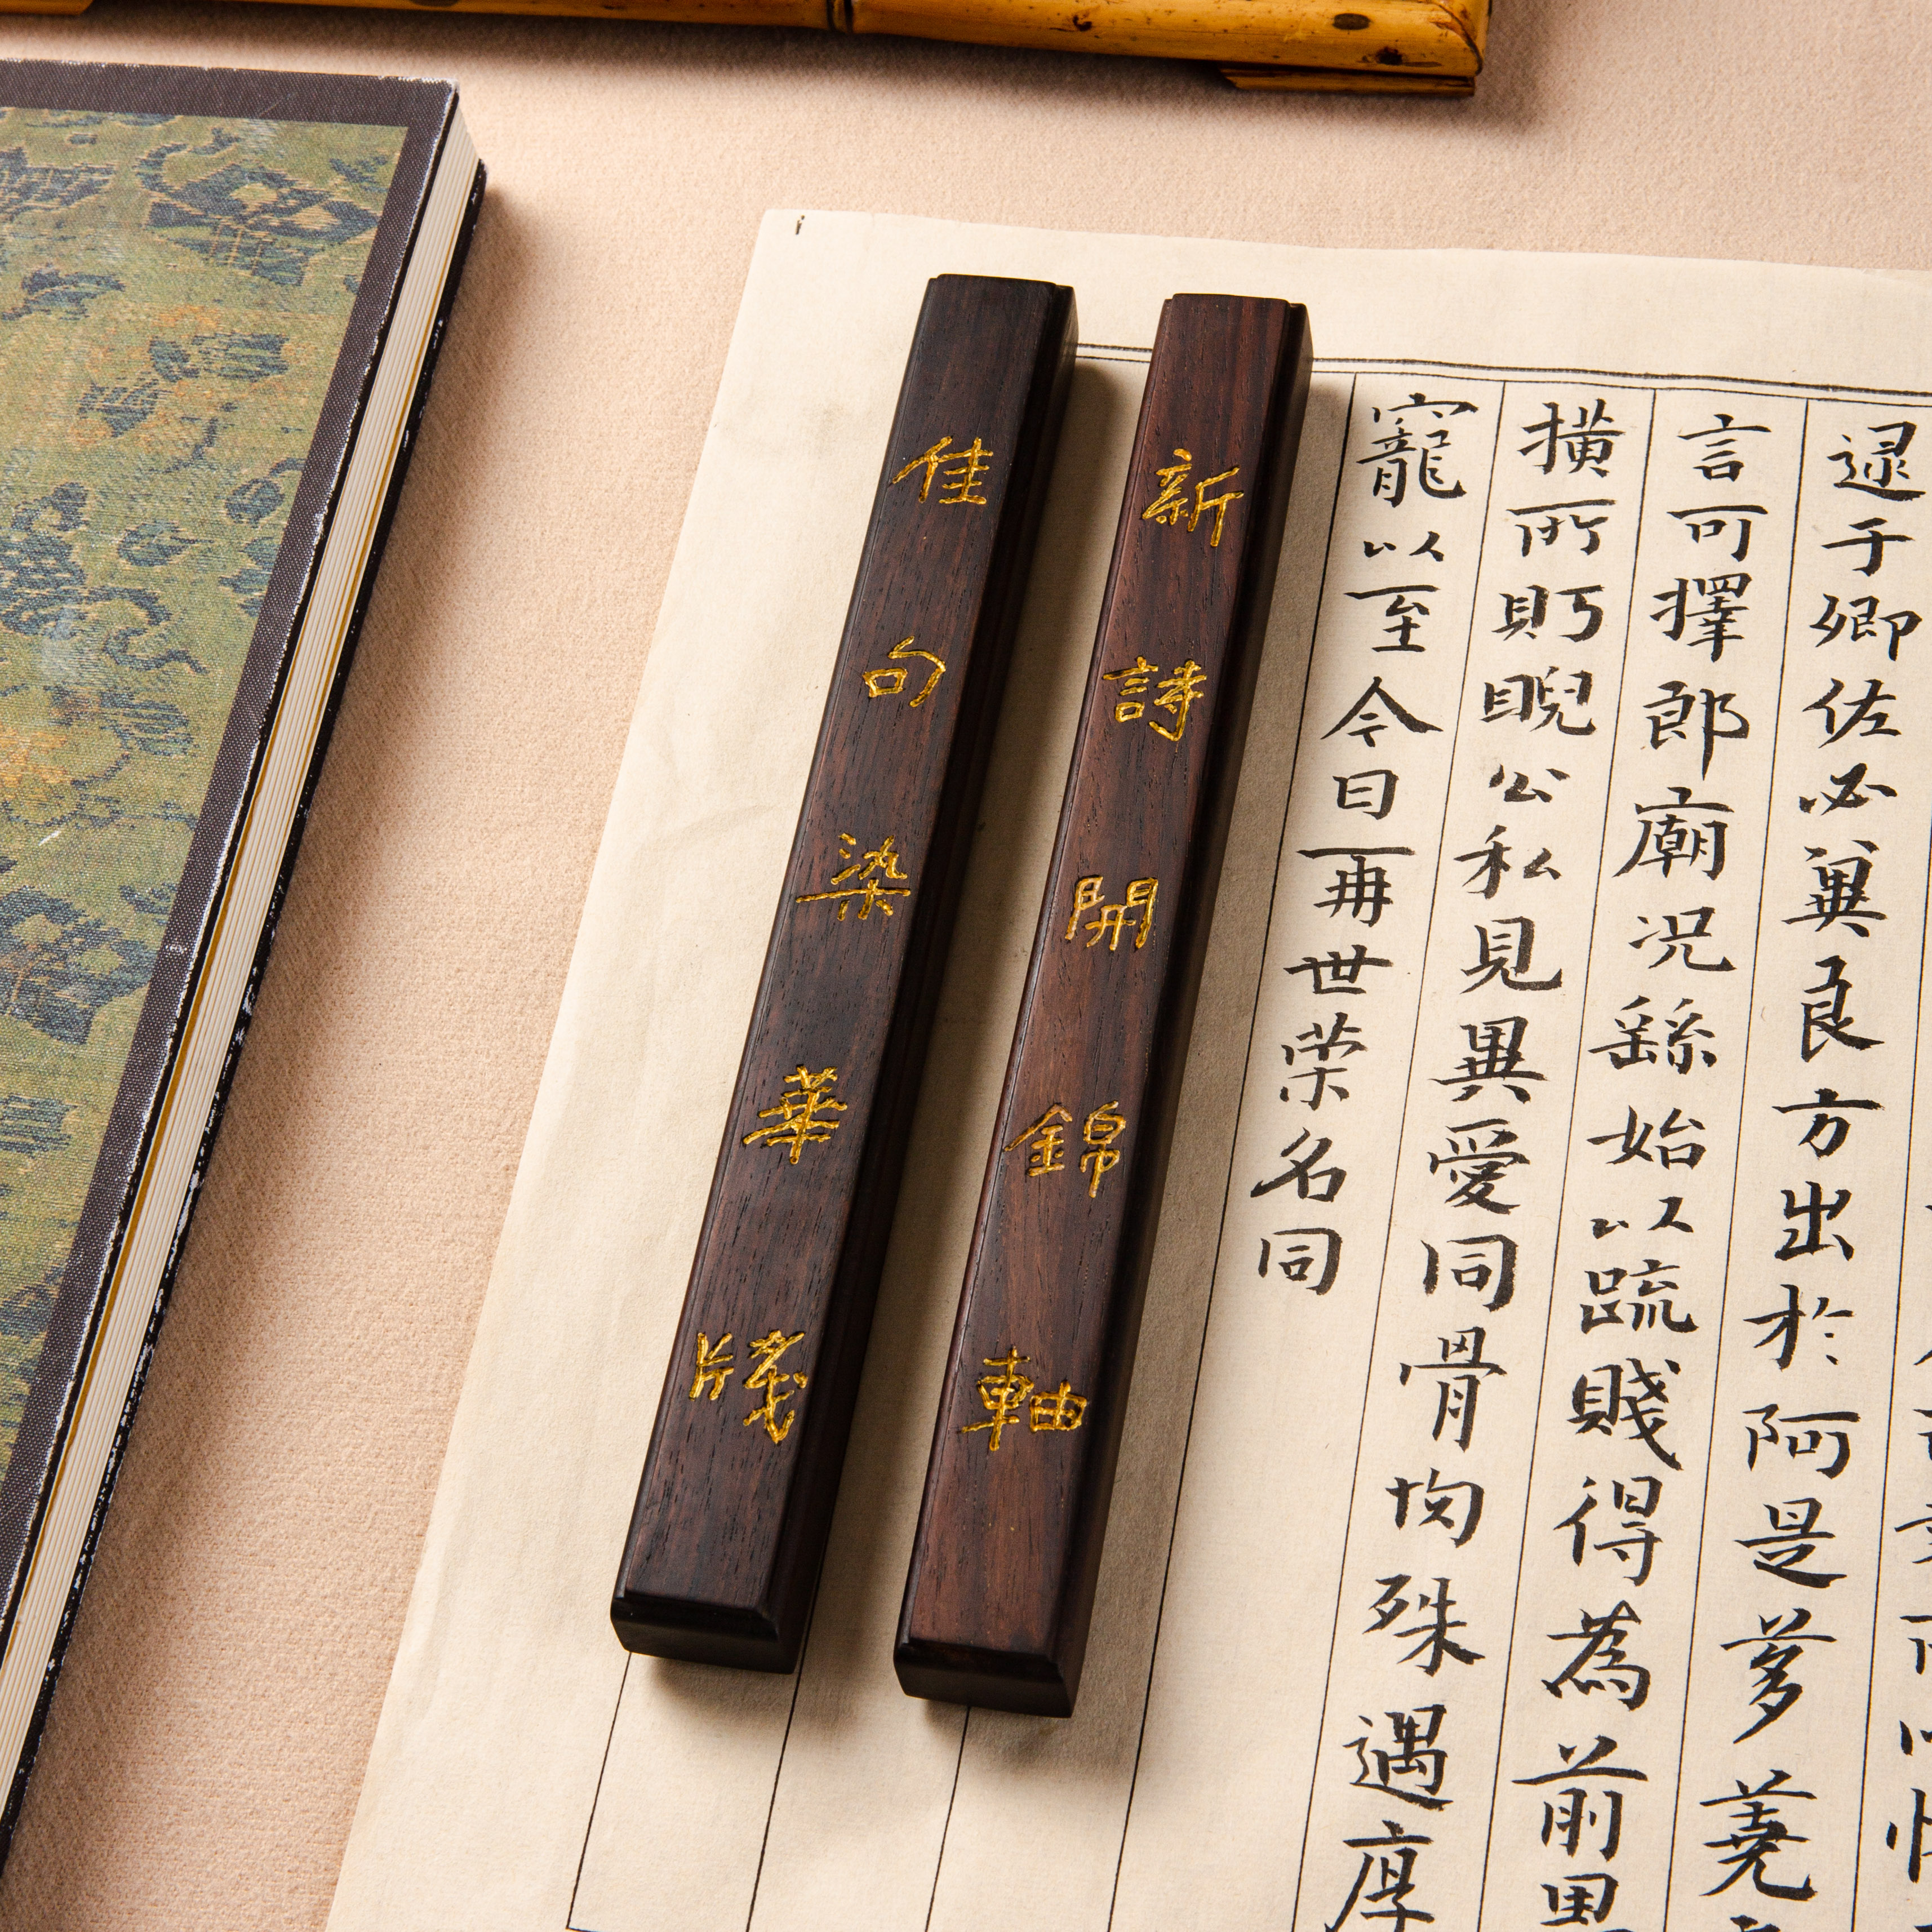 逮于卿佐必冀良方出於阿是芻蕘
言可擇郎廟况繇始以疏賤得為前
橫所盻睨公私見異愛同骨殊遇厚
寵以至今日再世荣名同
新詩開錦軸
佳句染華牋